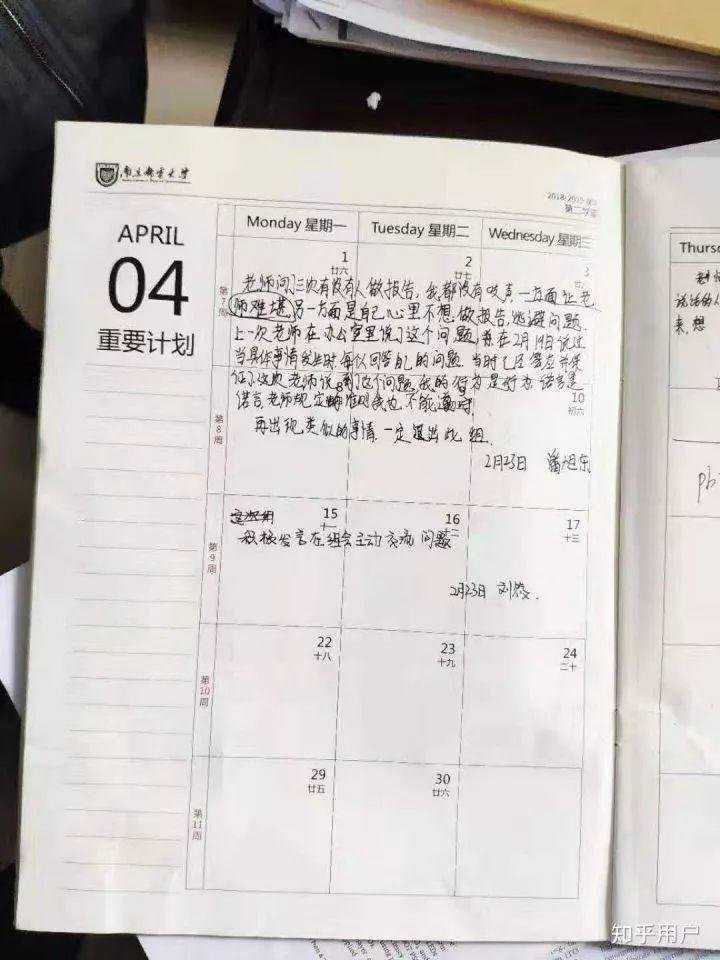 南京邮电大学
2018-2019学年
第二学期
APRIL
04
重要计划
Monday 星期一
Tuesday 星期二
Wednesday 星期三
Thurs
1
廿六
2
廿七
3
廿八
第7周
老师问了三次有没有人做报告，我都没有吱声一方面让老
师难堪，另一方面是自己心里不想做报告，逃避问题.
上一次老师在办公室里说了这个问题，并在2月19日说过
当具体事情发生时每人回答自己的问题.当时已经答应并保
证了这次老师说到了这个问题.我的行为是行为.诺言是
诺言.老师规定的准则我也不能遵守.
再出现类似的事情.一定退出此组.
2月23日 潘旭东
10
初六
第8周
15
十一
16
十二
17
十三
第9周
积极发言在组会主动交流问题
2月23日 刘
22
十八
23
十九
24
二十
第10周
29
廿五
30
廿六
第11周
来,想
pb
知乎用户